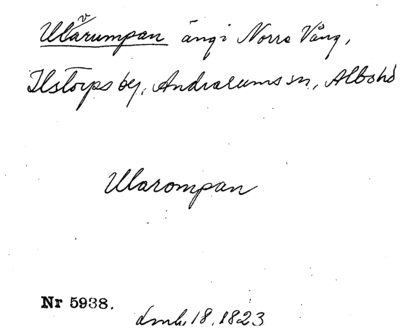 Ulvarumpan äng i Norra Vång,
Ilstorps by, Andrarums sn, Albo hd
Ularompan
Nr 5938.
dmh, 18, 1823